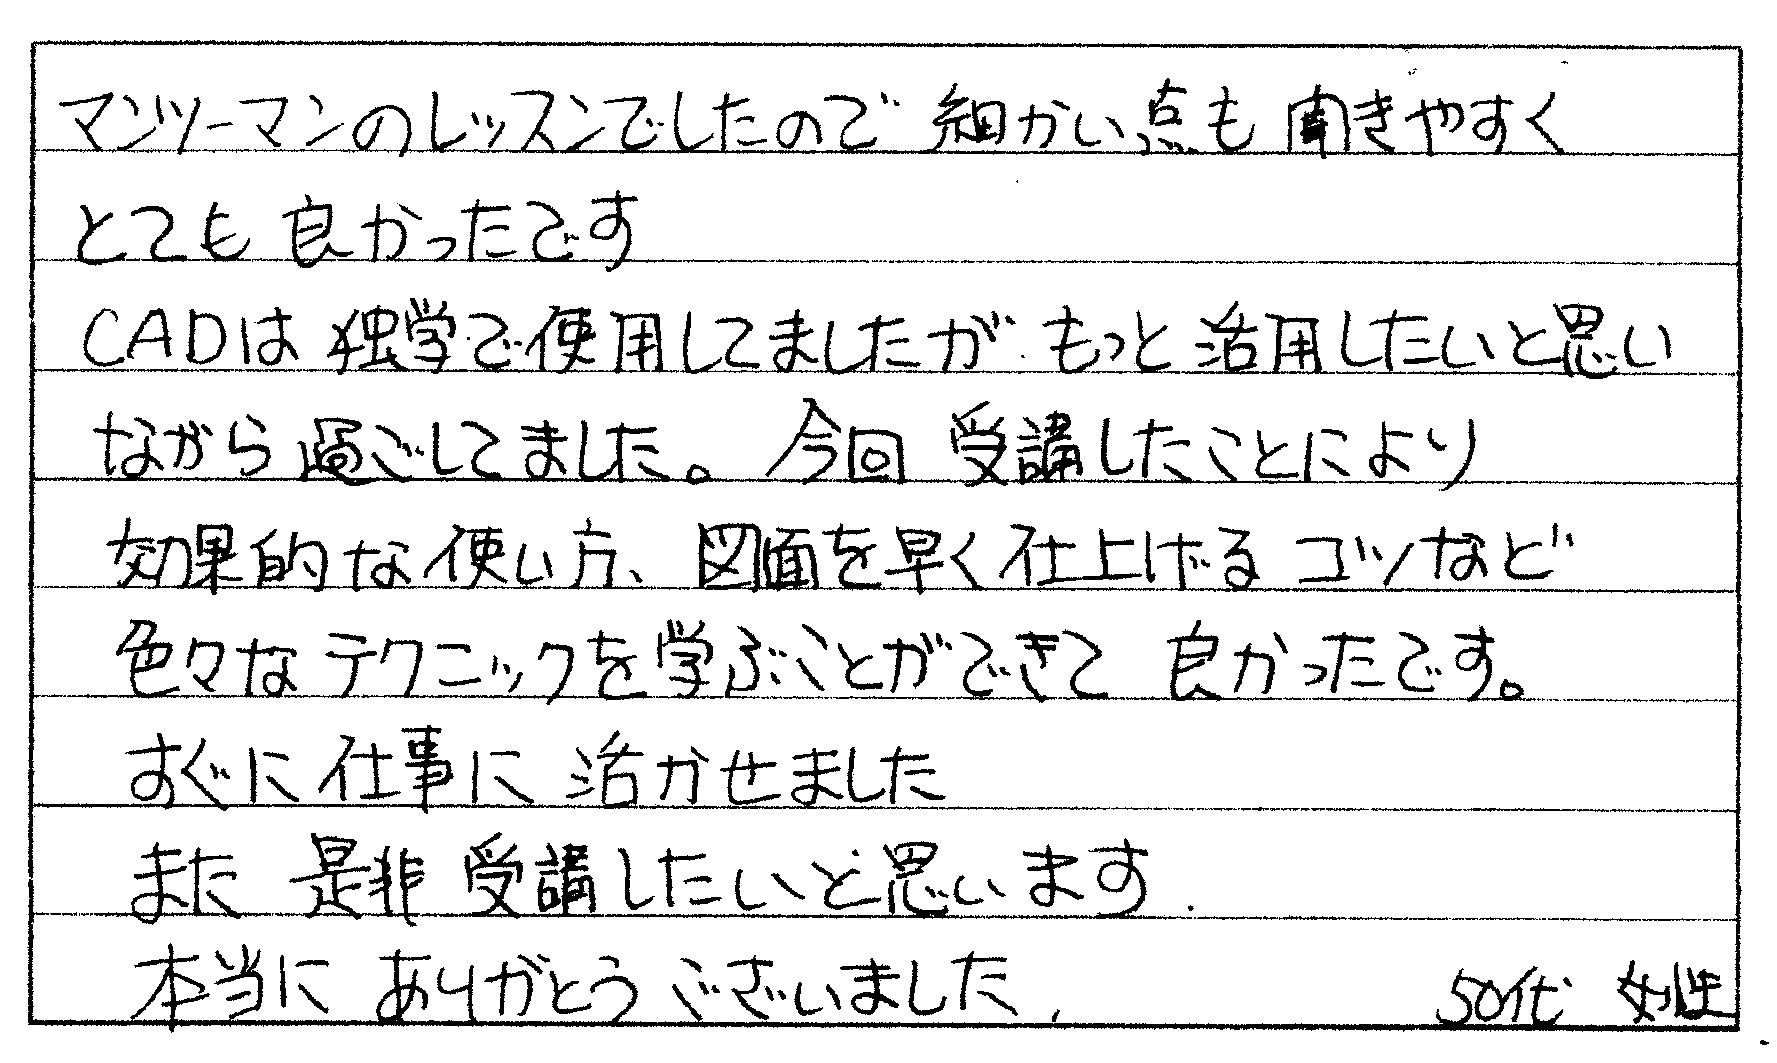 マンツーマンのレッスンでしたので 細かい点も 聞きやすく
とても 良かったです
CADは 独学で使用してましたが もっと 活用したいと思い
ながら 過ごしてました。 今回 受講したことにより
効果的な使い方、 図面を早く仕上げる コツなど
色々なテクニックを学ぶことができて 良かったです。
すぐに 仕事に 活かせました
また 是非 受講したいと思います.
本当に ありがとう ございました.
50代 女性